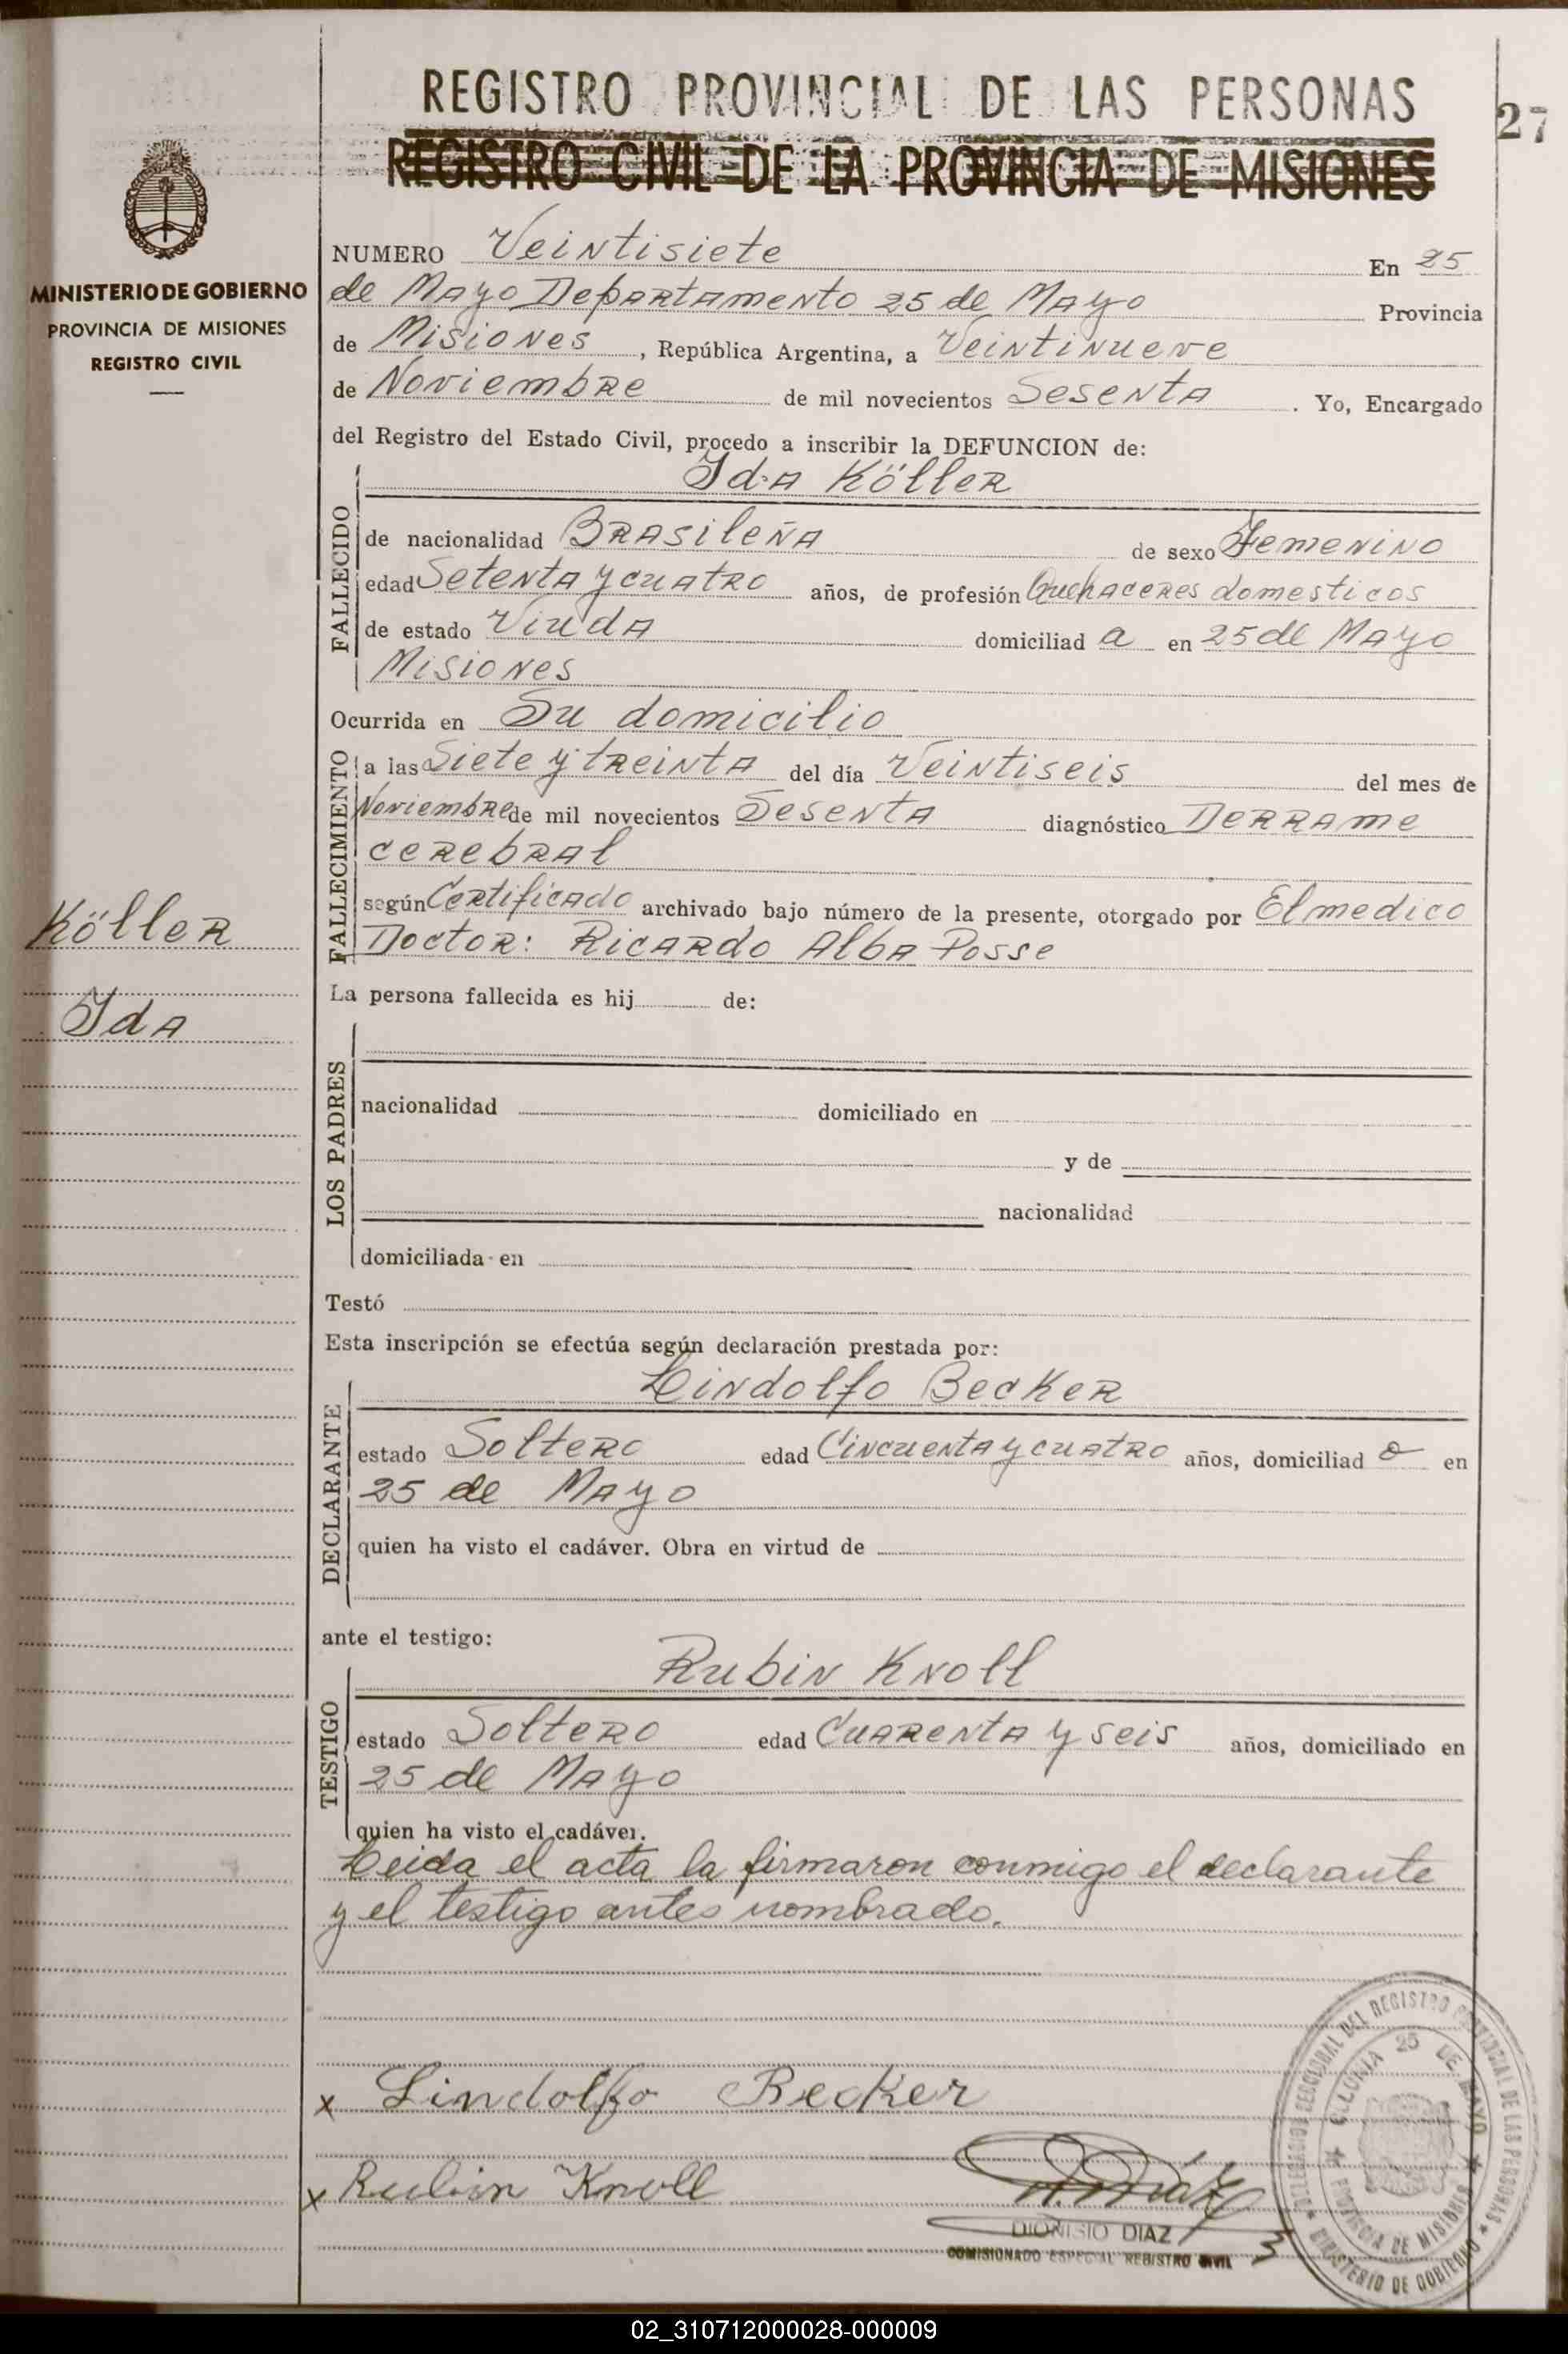 REGISTRO PROVINCIAL DE LAS PERSONAS
27
REGISTRO CIVIL DE LA PROVINCIA DE MISIONES
MINISTERIO DE GOBIERNO
PROVINCIA DE MISIONES
REGISTRO CIVIL
NUMERO Veintisiete En 25
de Mayo Departamento 25 de Mayo Provincia
de Misiones, República Argentina, a Veintinueve
de Noviembre de mil novecientos Sesenta. Yo, Encargado
del Registro del Estado Civil, procedo a inscribir la DEFUNCION de:
Ida Köller
FALLECIDO
de nacionalidad Brasileña de sexo Femenino
edad Setenta y cuatro años, de profesión Quehaceres domesticos
de estado Viuda domiciliad a en 25 de Mayo
Misiones
Ocurrida en Su domicilio
FALLECIMIENTO
a las Siete y treinta del día Veintiseis del mes de
Noviembre de mil novecientos Sesenta diagnóstico Derrame
cerebral
según Certificado archivado bajo número de la presente, otorgado por El medico
Doctor: Ricardo Alba Posse
Köller
Ida
La persona fallecida es hij de:
LOS PADRES
nacionalidad domiciliado en
y de
nacionalidad
domiciliada en
Testó
Esta inscripción se efectúa según declaración prestada por:
Lindolfo Becker
DECLARANTE
estado Soltero edad Cincuenta y cuatro años, domiciliad o en
25 de Mayo
quien ha visto el cadáver. Obra en virtud de
ante el testigo:
Rubin Knoll
TESTIGO
estado Soltero edad Cuarenta y seis años, domiciliado en
25 de Mayo
quien ha visto el cadáver.
Leida el acta la firmaron conmigo el declarante
y el testigo antes nombrado.
x Lindolfo Becker
x Rubin Knoll
D. Díaz
DIONISIO DIAZ
COMISIONADO ESPECIAL REGISTRO CIVIL
DELEGACION SECCIONAL DEL REGISTRO PROVINCIAL DE LAS PERSONAS
MINISTERIO DE GOBIERNO
COLONIA 25 DE MAYO
PROVINCIA DE MISIONES
02_310712000028-000009